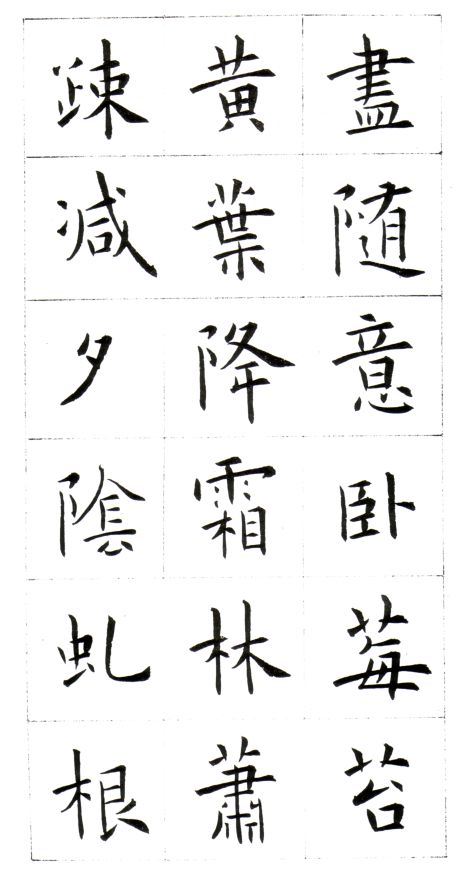 盡随意卧莓苔
黄葉降霜林蕭
踈減夕陰虬根